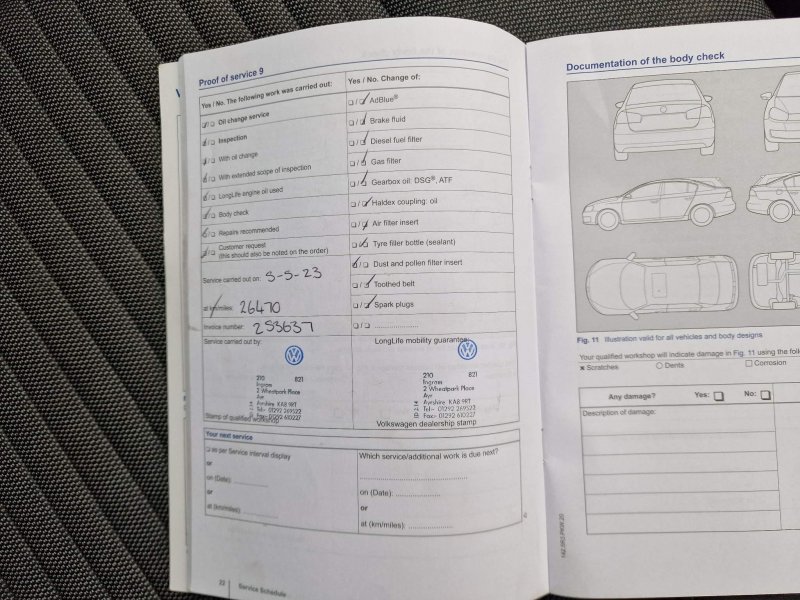 Proof of service 9
Yes / No. The following work was carried out:
Oil change service
Inspection
With oil change
With extended scope of inspection
LongLife engine oil used
Body check
Repairs recommended
Customer request
(this should also be noted on the order)
Service carried out on: 5-5-23
at km/miles: 26470
Invoice number: 253637
Yes / No. Change of:
AdBlue®
Brake fluid
Diesel fuel filter
Gas filter
Gearbox oil: DSG®, ATF
Haldex coupling: oil
Air filter insert
Tyre filler bottle (sealant)
Dust and pollen filter insert
Toothed belt
Spark plugs
Service carried out by:
210 821
Ingram
2 Wheatpark Place
Ayr
Ayrshire KA8 9RT
Tel:- 01292 269522
Fax:- 01292 610227
Stamp of qualified workshop
LongLife mobility guarantee:
210 821
Ingram
2 Wheatpark Place
Ayr
Ayrshire KA8 9RT
Tel:- 01292 269522
Fax:- 01292 610227
Volkswagen dealership stamp
Your next service
as per Service interval display
or
on (Date):
or
at (km/miles):
Which service/additional work is due next?
on (Date):
or
at (km/miles):
22 Service Schedule
Documentation of the body check
Fig. 11 Illustration valid for all vehicles and body designs
Your qualified workshop will indicate damage in Fig. 11 using the
Scratches Dents Corrosion
Any damage? Yes: No:
Description of damage: